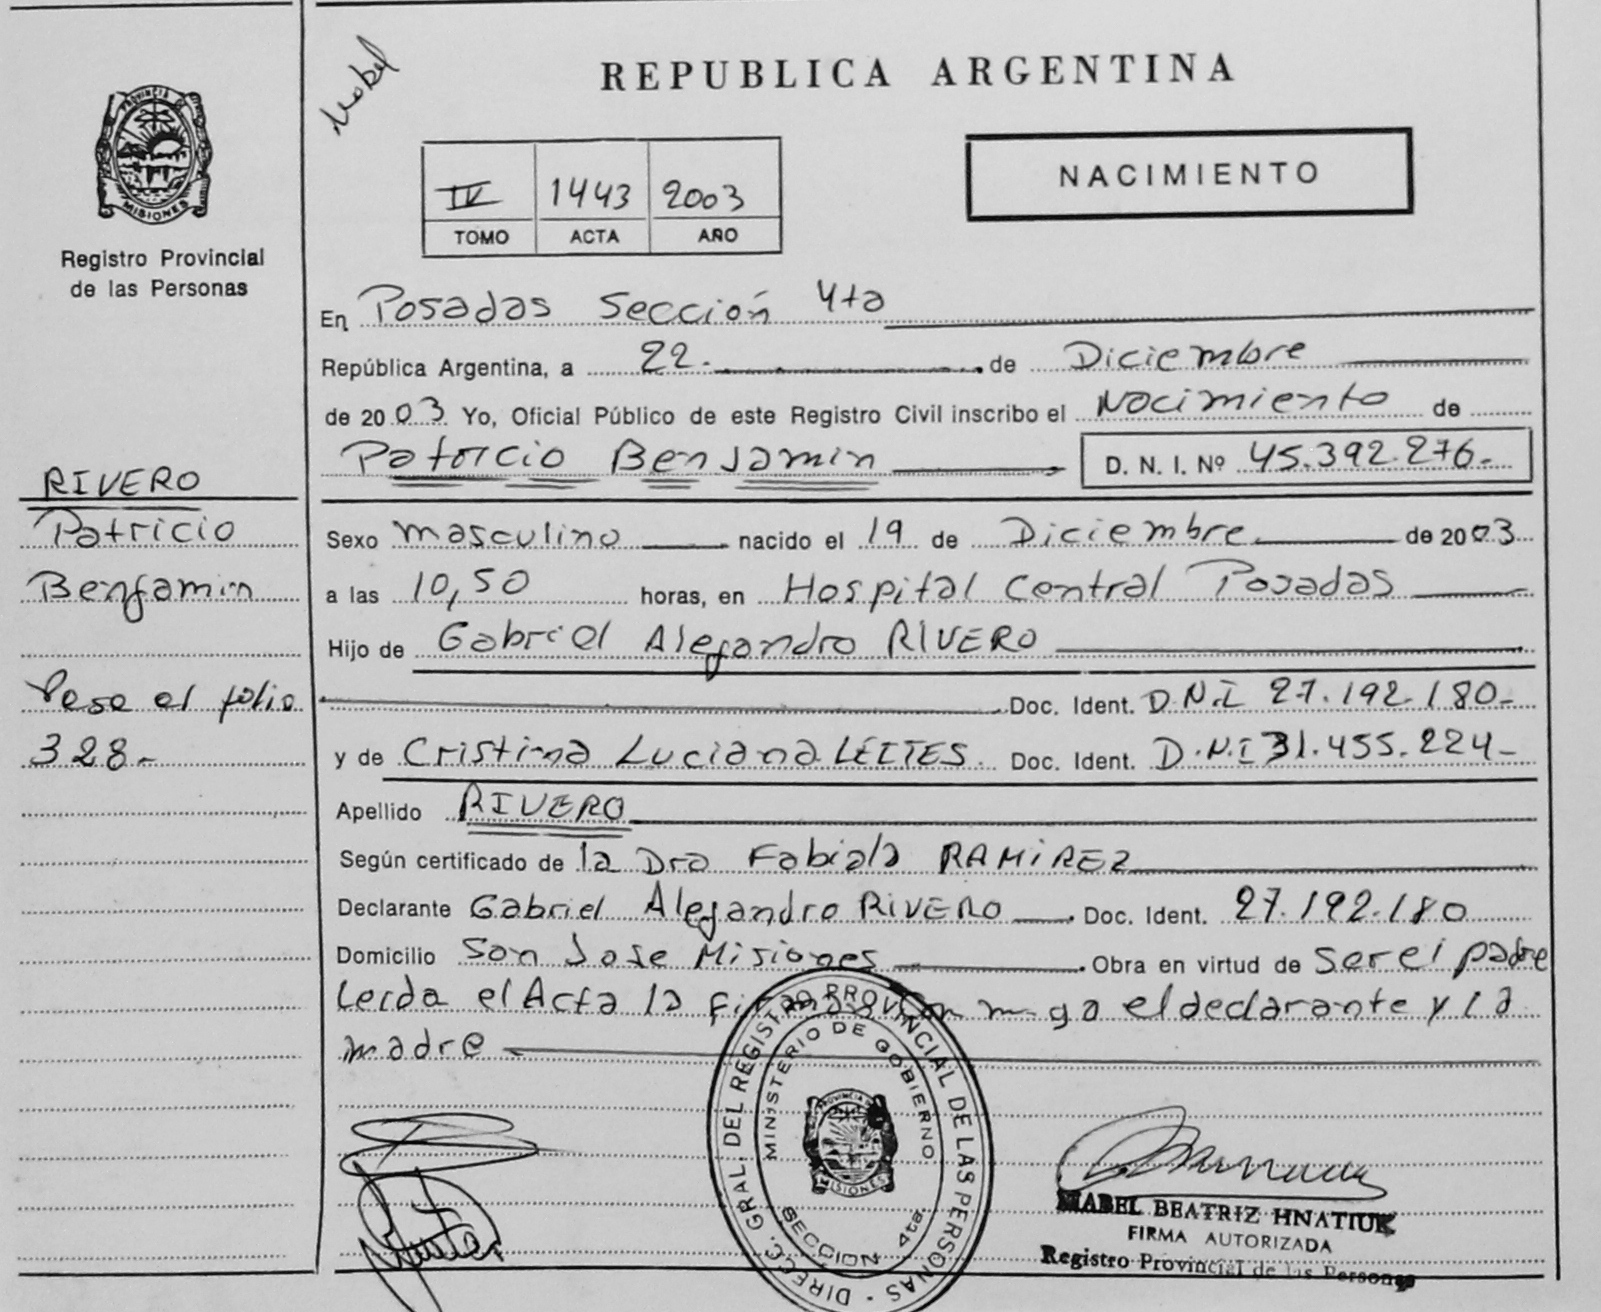 PROVINCIA DE
MISIONES
Registro Provincial
de las Personas
RIVERO
Patricio
Benjamin
Pasa al folio
328-
Mabel
REPUBLICA ARGENTINA
IV 1443 2003
TOMO ACTA AÑO
NACIMIENTO
En Posadas Sección 4ta
República Argentina, a 22- de Diciembre
de 2003 Yo, Oficial Público de este Registro Civil inscribo el Nacimiento de
Patricio Benjamin D. N. I. Nº 45.392.276-
Sexo masculino nacido el 19 de Diciembre de 2003
a las 10,50 horas, en Hospital Central Posadas
Hijo de Gabriel Alejandro RIVERO
Doc. Ident. D.N.I 27.192.180-
y de Cristina Luciana LEITES Doc. Ident. D.N.I 31.455.224-
Apellido RIVERO
Según certificado de la Dra Fabiola RAMIREZ
Declarante Gabriel Alejandro RIVERO Doc. Ident. 27.192.180
Domicilio San Jose Misiones Obra en virtud de ser el padre
Leida el Acta la firman con migo el declarante y la
madre
DIRECC. GRAL. DEL REGISTRO PROVINCIAL DE LAS PERSONAS -
MINISTERIO DE GOBIERNO
PROVINCIA DE
MISIONES
SECCION 4ta.
MABEL BEATRIZ HNATIUK
FIRMA AUTORIZADA
Registro Provincial de las Personas